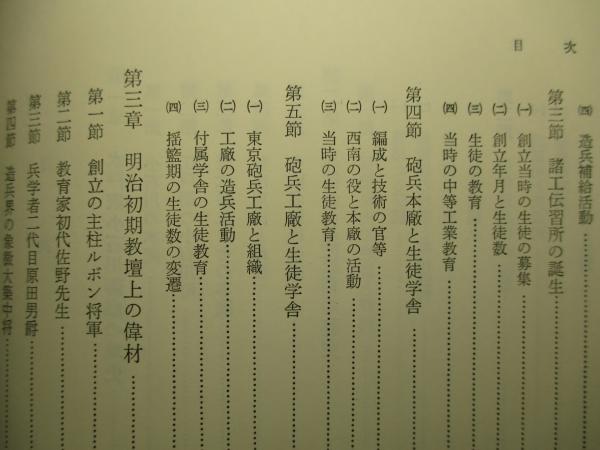 目次
㈣ 造兵補給活動
第三節 諸工伝習所の誕生
㈠ 創立当時の生徒の募集
㈡ 創立年月と生徒数
㈢ 生徒の教育
㈣ 当時の中等工業教育
第四節 砲兵本廠と生徒学舎
㈠ 編成と技術の官等
㈡ 西南の役と本廠の活動
㈢ 当時の生徒教育
第五節 砲兵工廠と生徒学舎
㈠ 東京砲兵工廠と組織
㈡ 工廠の造兵活動
㈢ 付属学舎の生徒教育
㈣ 揺籃期の生徒数の変遷
第三章 明治初期教壇上の偉材
第一節 創立の主柱ルボン将軍
第二節 教育家初代佐野先生
第三節 兵学者二代目原田男爵
第四節 造兵界の象徴大築中将